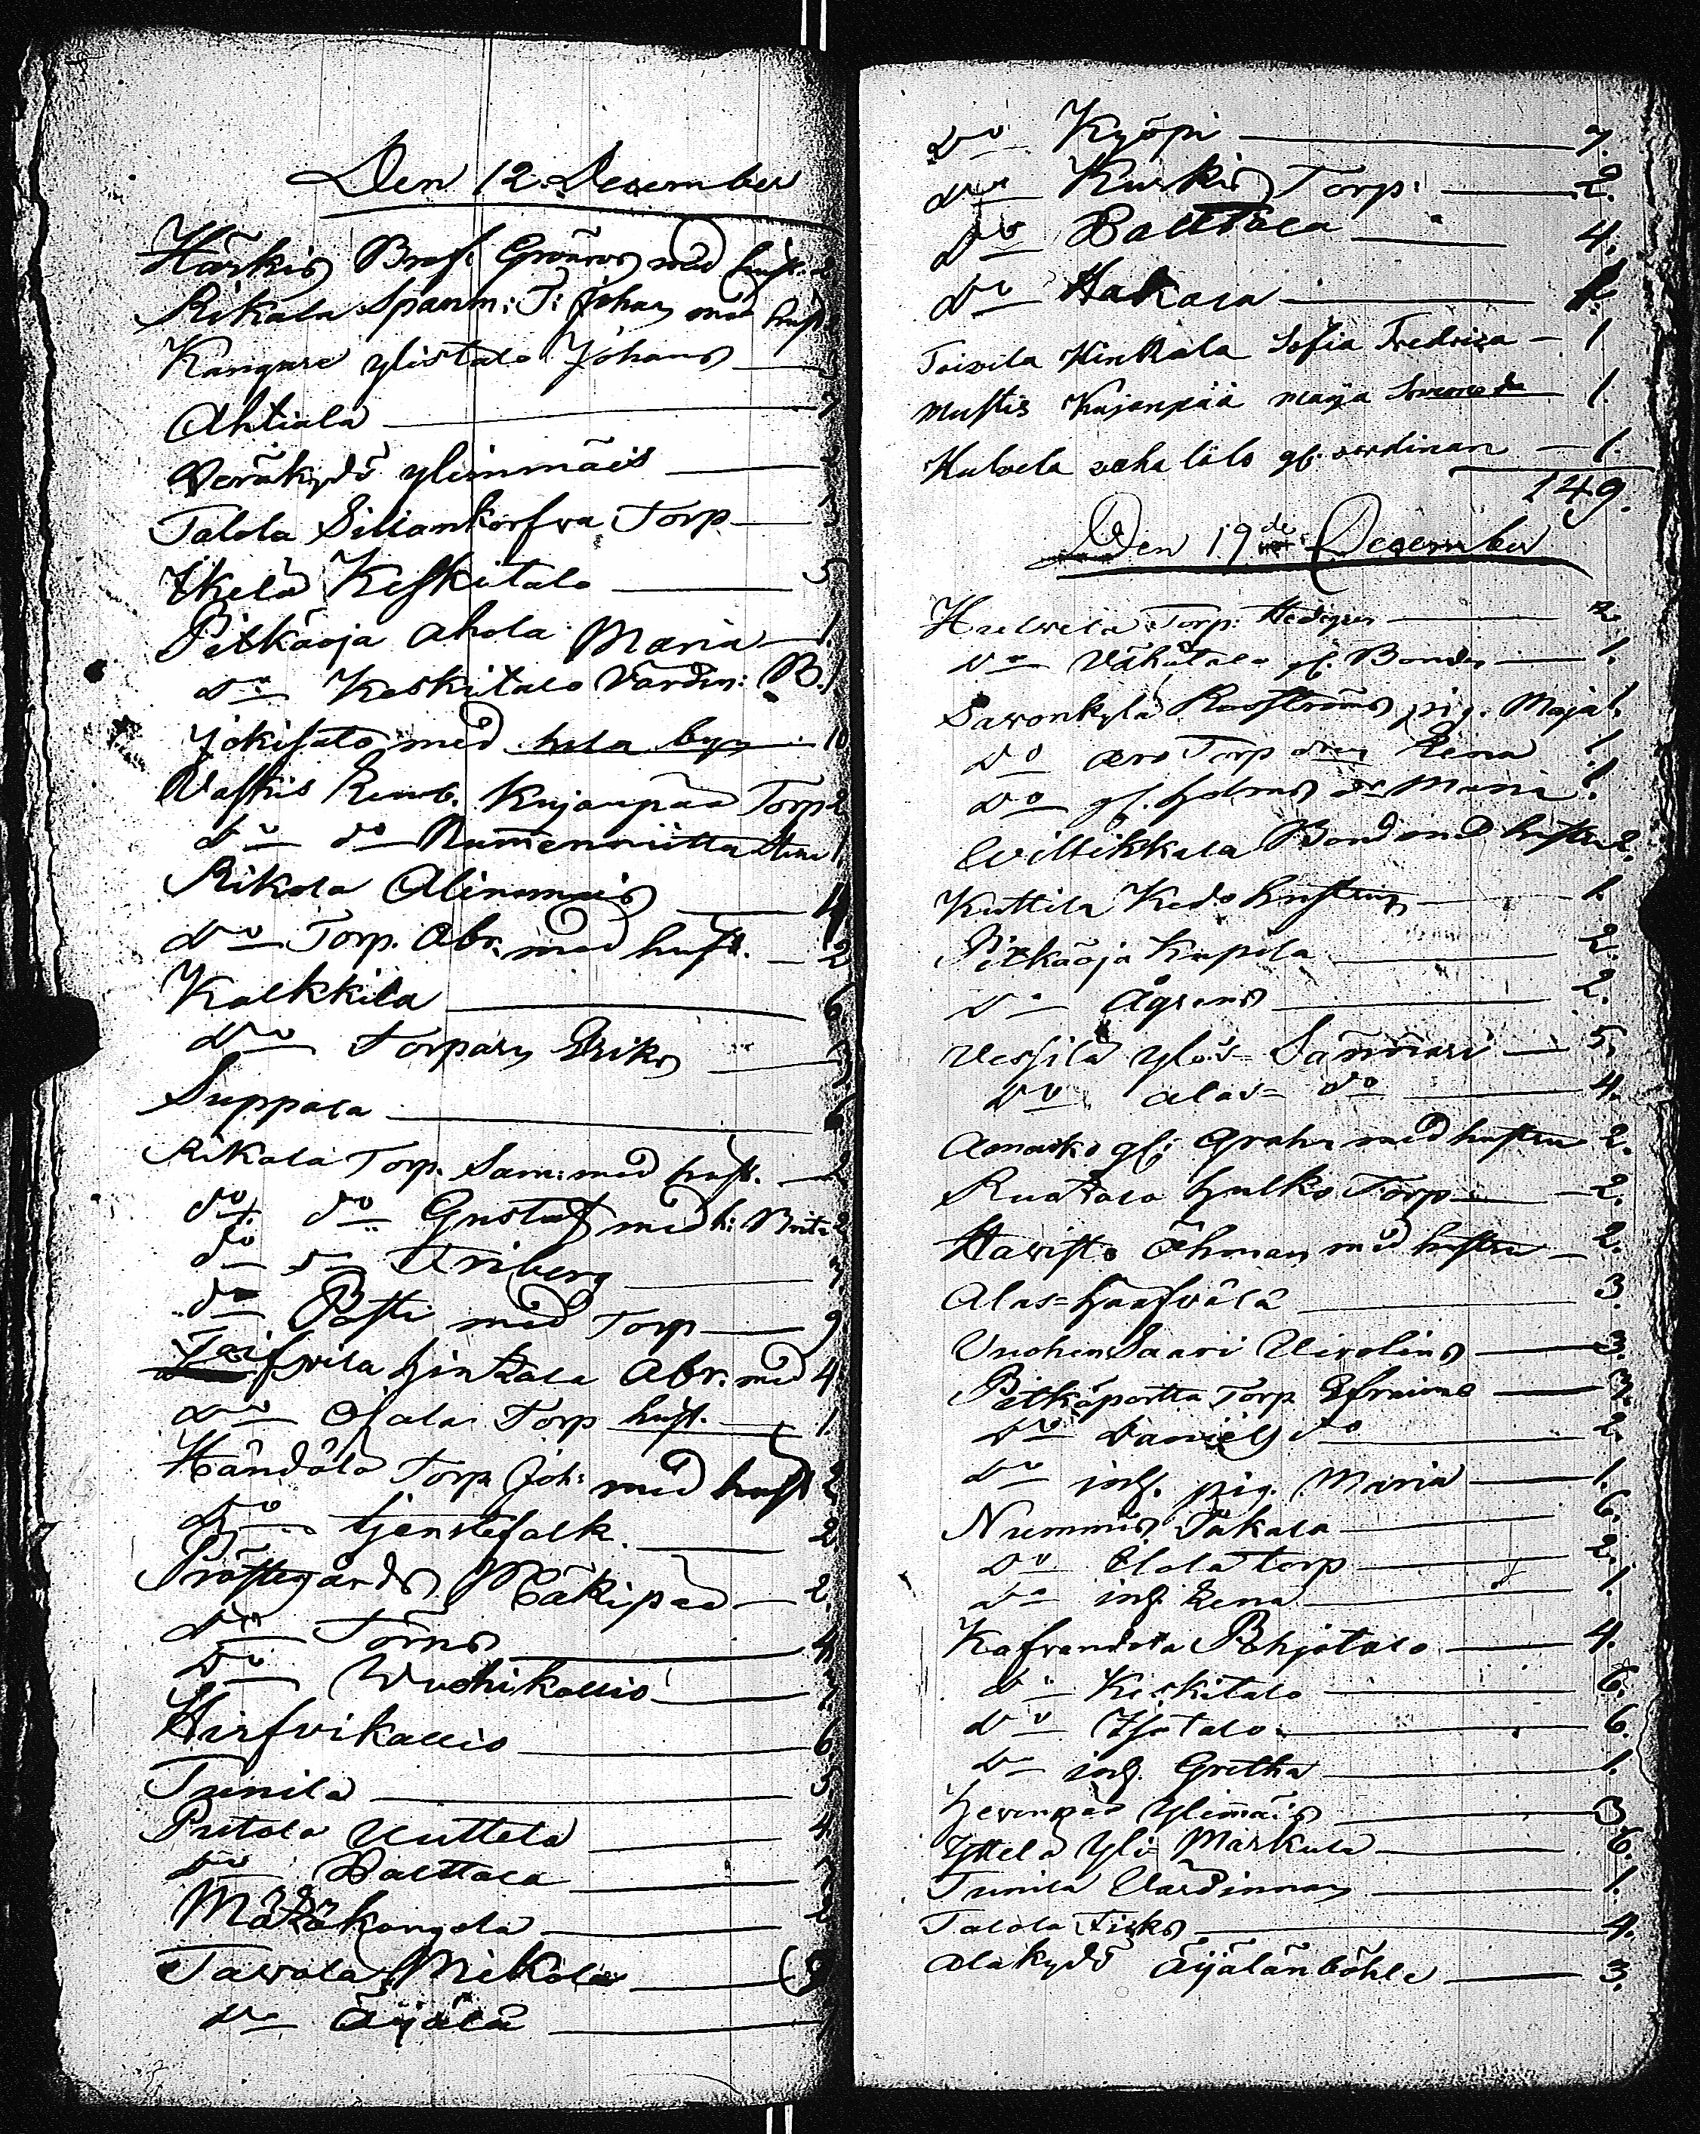 Den 12 December
Härkis Braf: Grönros med hust. 2
Rikala Spanm: T: Johan med hust
Kangare ylistalo Johans
Ahtiala 7
Veräkydö ylimmäis
Talola Sillankorfva Torp 3
Ikelä Keskitalo 5
Pitkäoja Ahola Maria 1.
do Keskitalo Värdin: B. 1
Jokisato med hela byn 10
Vaskis Kujanpää Torp 2
do do Nummenniitta 1.
Rikala Alinomais 4
do Torp. Abr. med hust. 2
Kalkkila 6
do Torpare Eriks 3
Suppala 6
Rikala Torp. Sam: med hust. 2
do do Gustaf med h: Brita 2
do do Friberg 7
do Posti med Torp 9
Toifvila hintzala Abr. med 4
do Ojala Torp hust. 1.
Händälä Torp Joh: med hust 2
do tjenstefolk. 2.
Pråstegårds Mäkipää 2.
do Törns 4
do Wuohikallio 7.
Hirfvikallio 6
Tunila 5
Pritala Uuttela 4
do Dalttala 7
Mätäkangela 2
Tavola Mikola 9
do Äyälä
do Kyöpi 7.
do Kurkis Torp: 2.
do Balttala 4.
do Hakala 1.
Toivila Hinkala Sofia Fredrica 1
Mustis Kujanpää Maija 1.
Hulvela vaha talo gl. värdinan 1.
149.
Den 19de December
Hulvela Torp. 2
do Vähätalo gl. Bonden 1.
Savonkylä pig. Maja 1.
do Torp Lena 1.
do gl. Maria 1.
Villikkala Bond med hustru 2.
Kuttila Kedo hustrun 1.
Pitkäoja Kupila 2.
do Ågrens 2.
Vesfila ylös= Sänniäri 5.
do alas= do 4.
gl: Grahn med hustru 2.
Ruatala hulko Torp 2.
Havisto Öhman med hustru 2.
Alas=haafvälä 3.
Vuohensaari Virolins 3.
Pitkäportta Torp Efraims 3.
do Daniels do 2.
do inh. pig. Maria 1.
Nummis Täkala 6.
do Elola torp 2.
do inh Lena 1.
Kafvandola Pohjatalo 4.
do Keskitalo 6.
do Isotalo 6.
do inh. Gretha 1.
hevenpää Ylimäis 3
Yttelä Yli Markula 6.
Tunila Värdinnan 1.
Talola Tisks 4.
Alakydö Äyälänböhle 3.